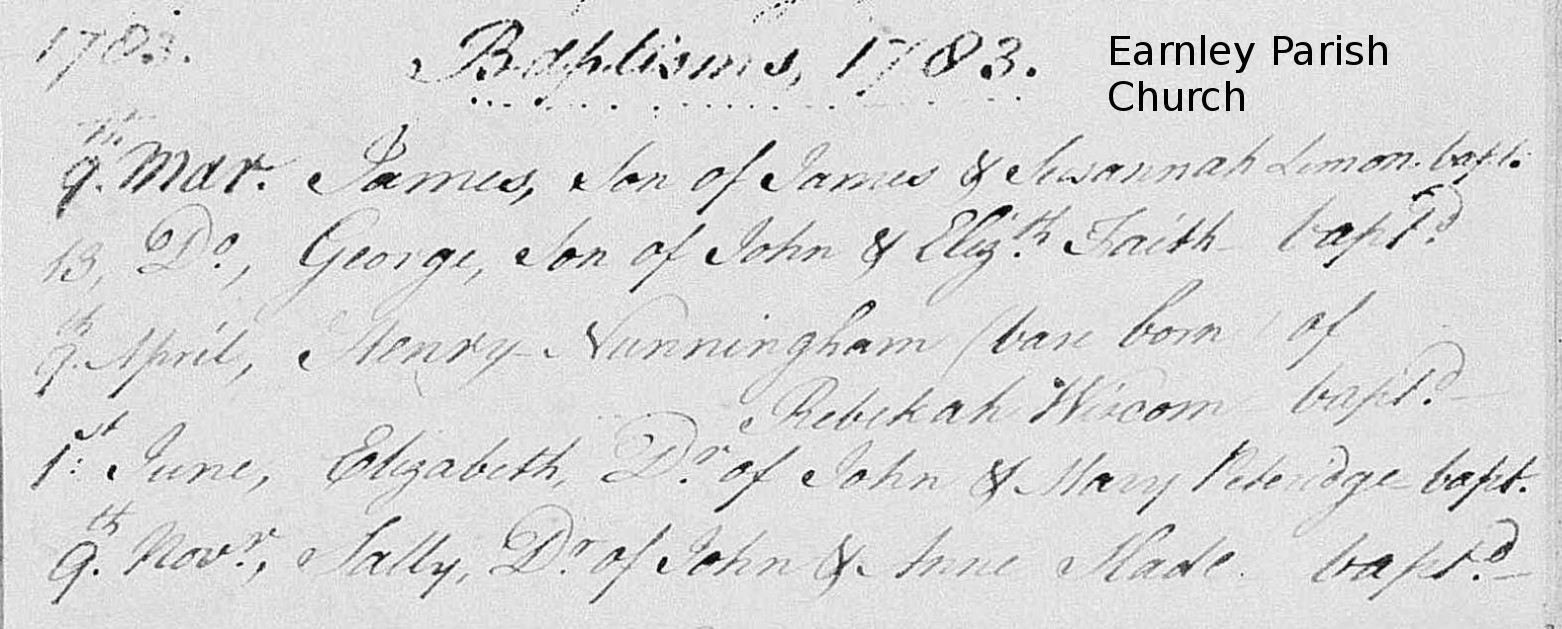 1783. Baptisms, 1783. Earnley Parish
Church
9.th Mar. James, Son of James & Susannah Limon. bapt.
13, Do., George, Son of John & Eliz.th Faith bapt.d
9.th April, Henry Nunningham (base born) of
Rebekah Wiscom bapt.d
1.st June, Elizabeth, D.r of John & Mary Peteridge bapt.
9.th Nov.r, Sally, D.r of John & Anne Slade. bapt.d